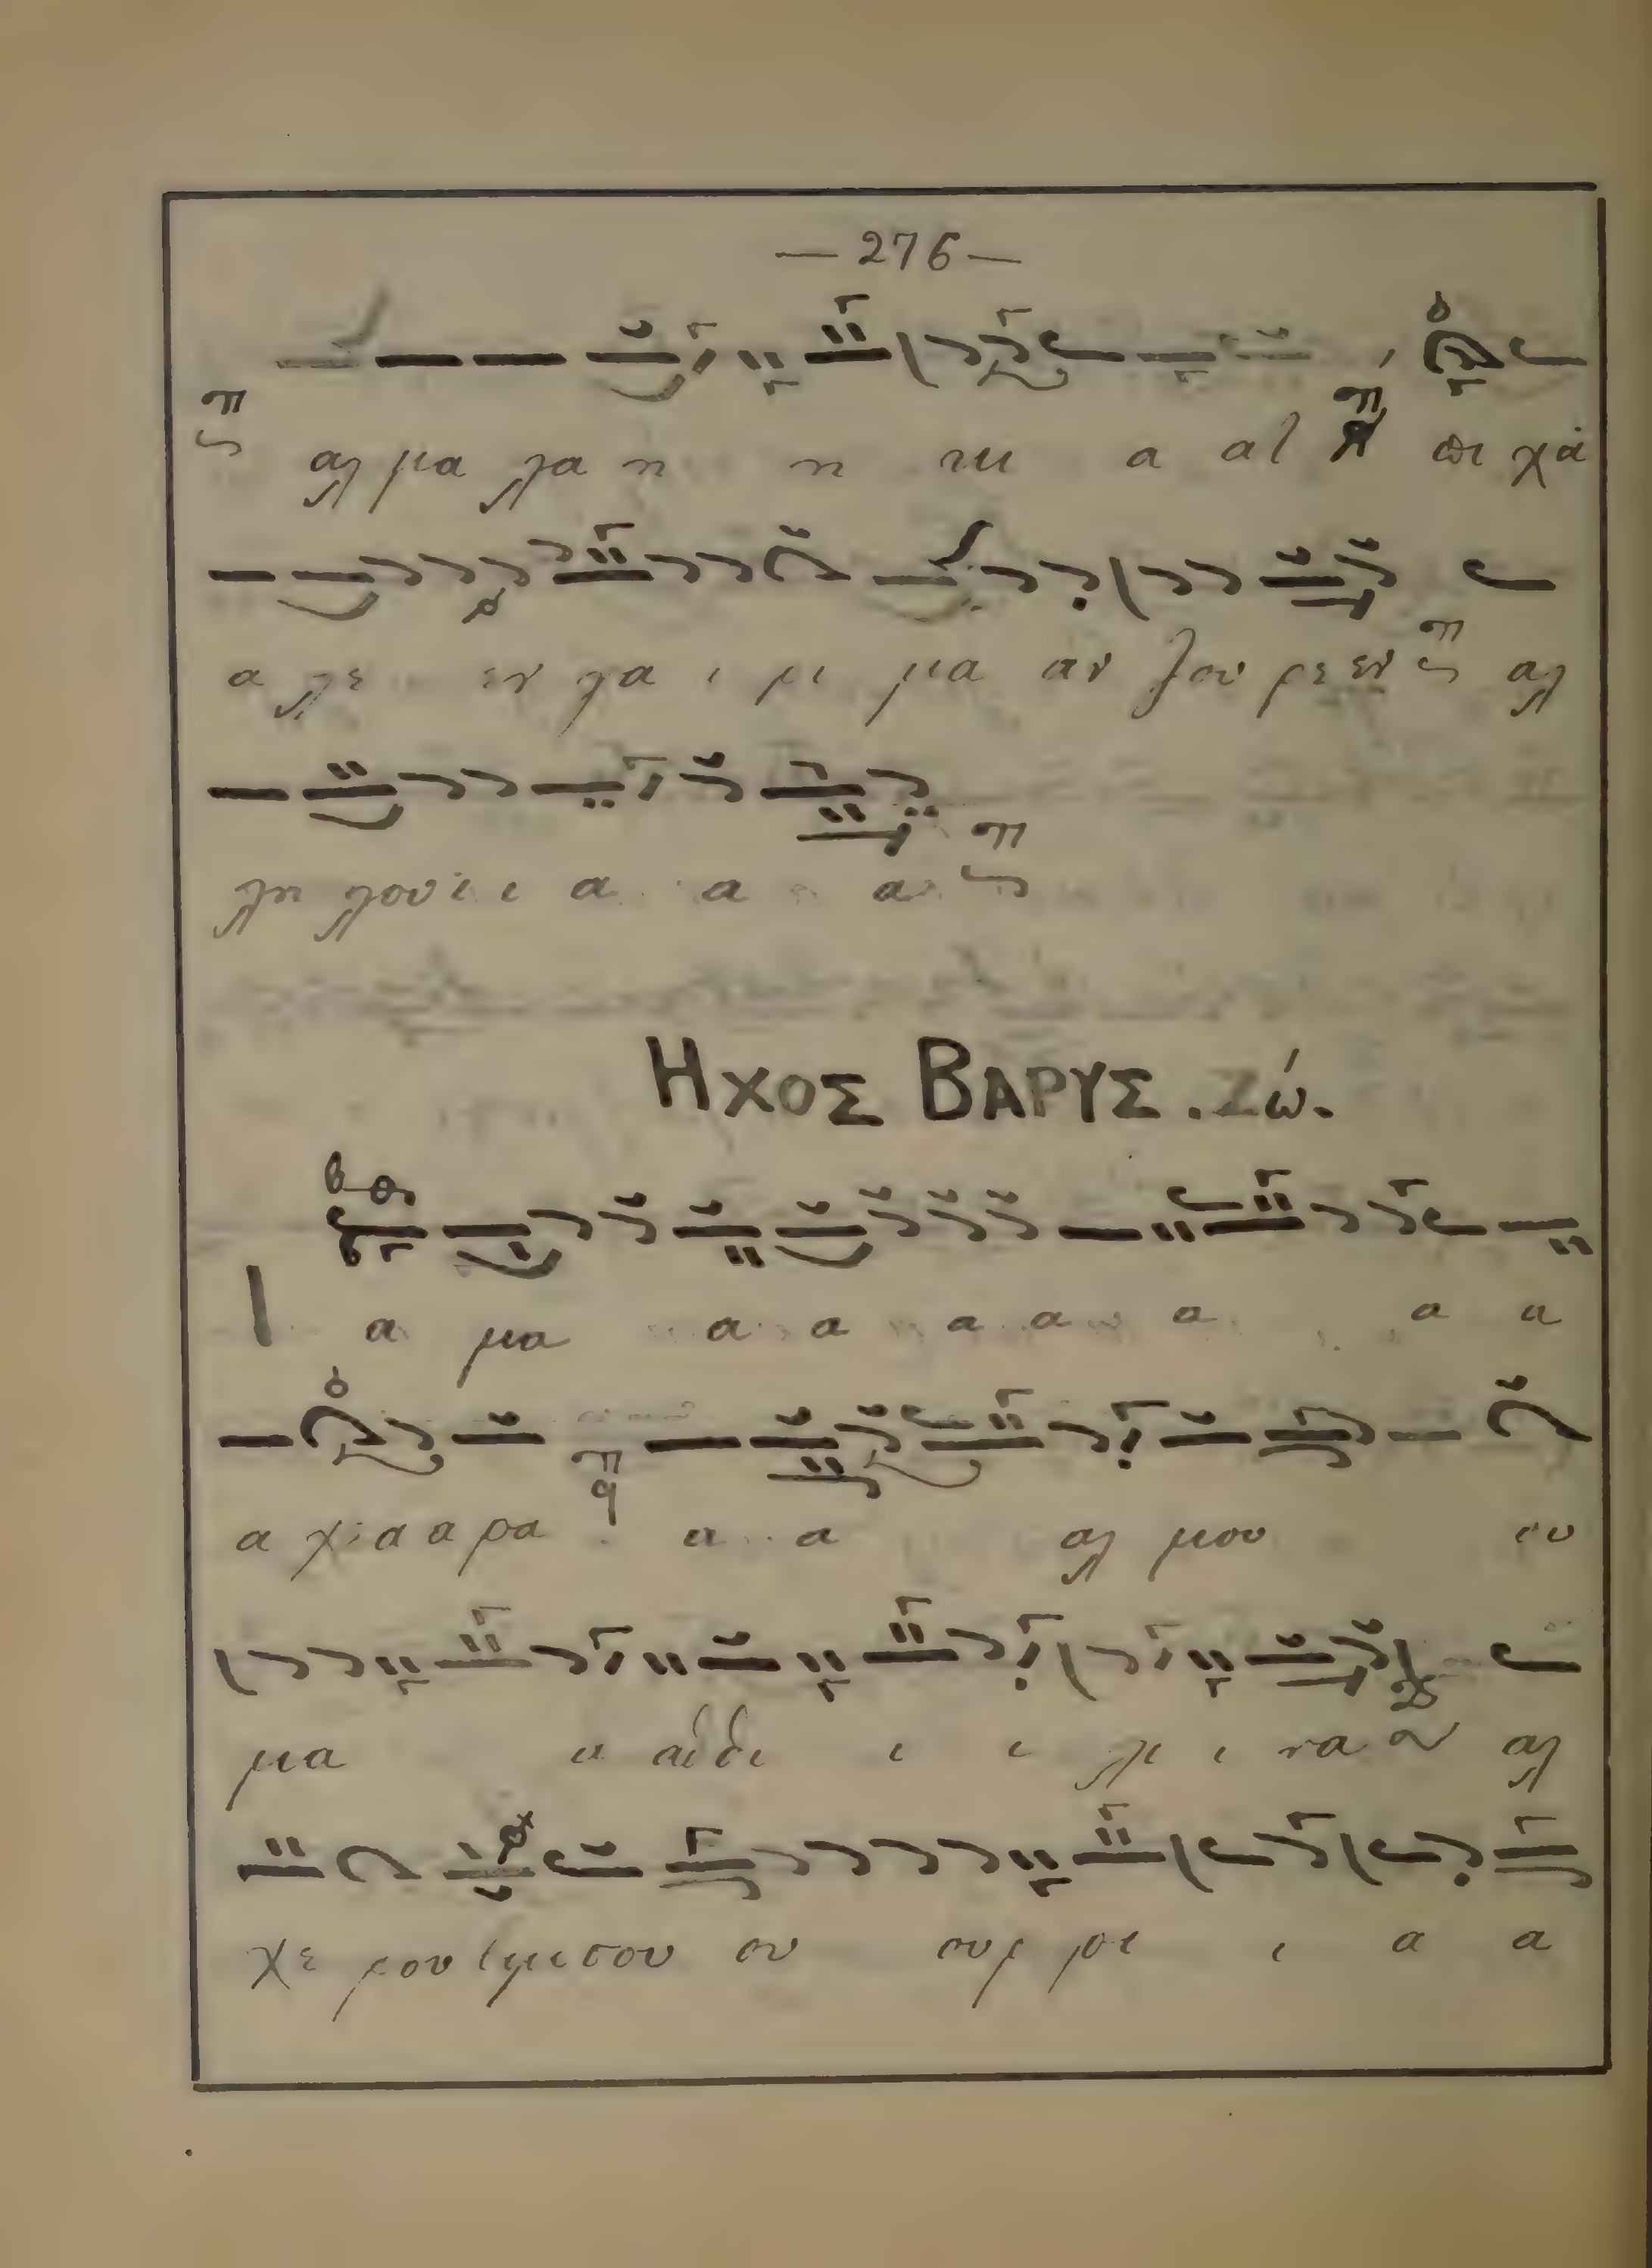 — 276 —
αλ μα λα η η και α αλ πι χά
α λε εν λα ι μι μα αν λου ρε εν αλ
λη λου ι ι α α α
ΗΧΟΣ ΒΑΡΥΣ . Ζώ.
Ι α μα α α α α α α α
α χι α α ρα α α αλ μου ου
μα α αϊδι ι ι λι ι να αλ
χε ρου σου ου ουρ ρι ι α α